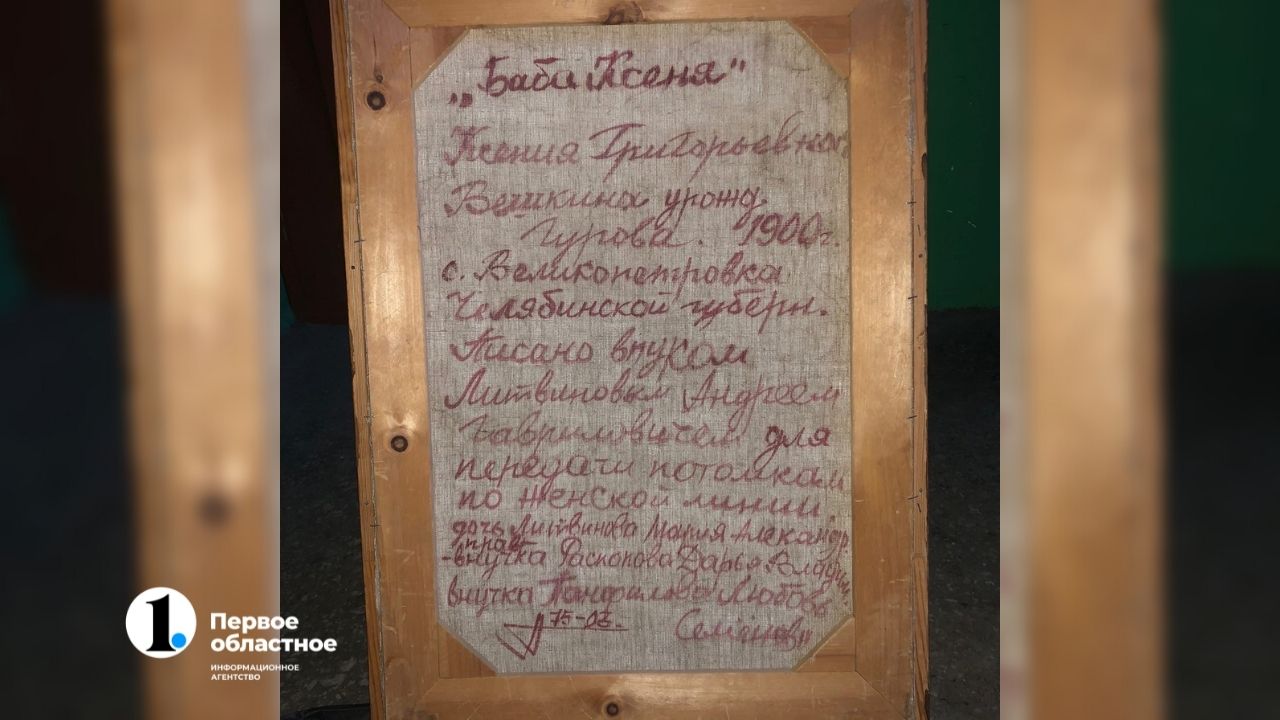 „Баба Ксеня"
Ксения Григорьевна
Вешкина урожд.
Гурова. 1900г.
с. Великопетровка
Челябинской губерн.
Писано внуком
Литвиновым Андреем
Гавриловичем для
передачи потомкам
по женской линии
дочь Литвинова Мария Александр
правнучка Раскопова Дарья
внучка Панфилова Любовь
75-03.
Семёновн
1.
Первое
областное
ИНФОРМАЦИОННОЕ
АГЕНТСТВО